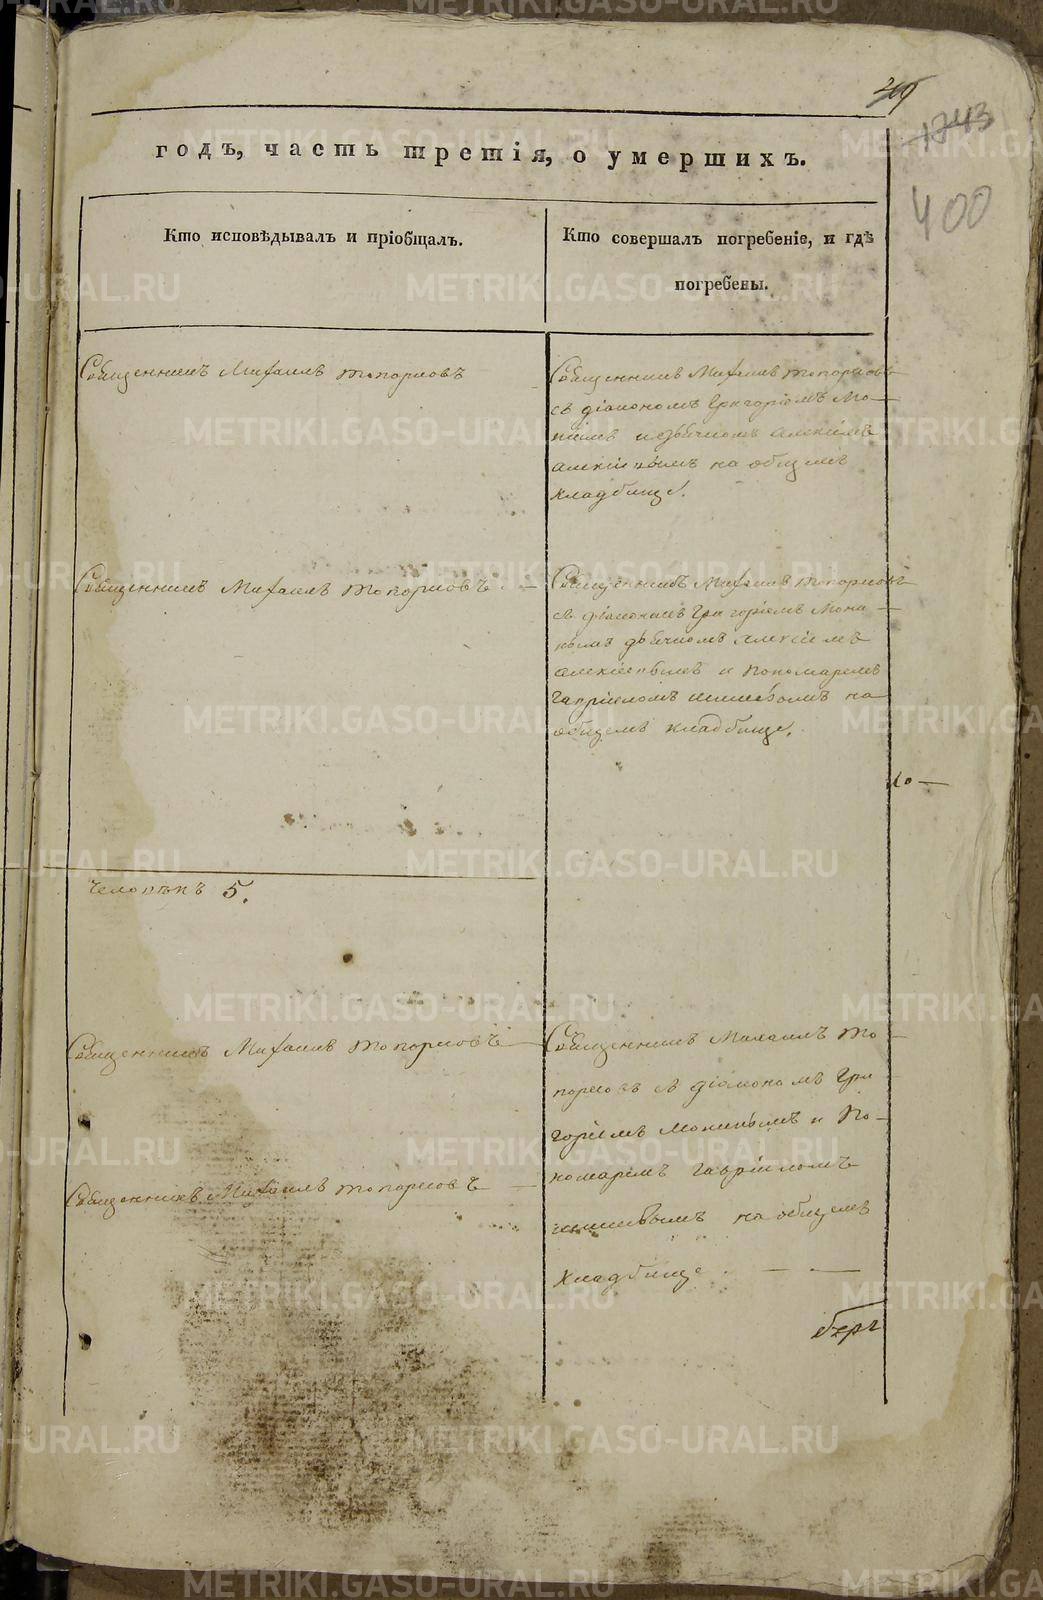 1743
400
годъ, часть третія, о умершихъ.
Кто исповѣдывалъ и пріобщалъ.
Кто совершалъ погребеніе, и гдѣ
погребены.
Священникъ Михаилъ Топорковъ
Священникъ Михаилъ Топорковъ
съ діакономъ Григоріемъ Мо-
алексіевымъ на общемъ
кладбище.
Священникъ Михаилъ Топорковъ
Священникъ Михаилъ Топорковъ
съ діакономъ Григоріемъ Мони-
нымъ дьячкомъ Алексіемъ
алексіевымъ и пономаремъ
Гавріиломъ на
общемъ кладбище.
Человѣкъ 5.
Священникъ Михаилъ Топорковъ
Священникъ Михаилъ То-
порковъ съ діакономъ Гри-
горіемъ Монинымъ и По-
номаремъ Гавріиломъ
на общемъ
кладбище.
Священникъ Михаилъ Топорковъ
METRIKI.GASO-URAL.RU